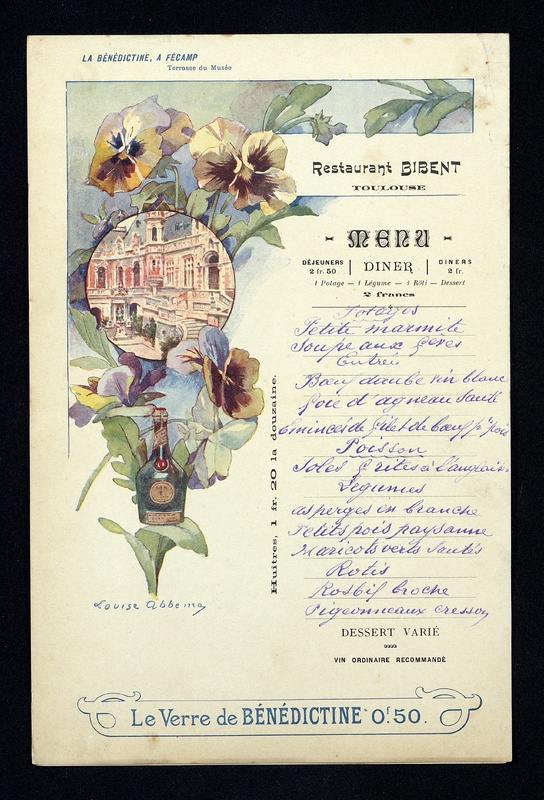 LA BÉNÉDICTINE, A FÉCAMP
Terrasse du Musée
Restaurant BIBENT
TOULOUSE
MENU
DÉJEUNERS
2 fr. 50
DINER
DINERS
2 fr.
1 Potage — 1 Légume — 1 Rôti — Dessert
2 francs
Potages
Petite marmite
Soupe aux fèves
Entrée
Bœuf daube vin blanc
foie d'agneau sauté
Emincé de filet de bœuf p. pois
Poisson
Soles frites à l'anglaise
Légumes
asperges en branche
Petits pois paysanne
Haricots verts sautés
Rotis
Rosbif broche
Pigeonneaux cresson
DESSERT VARIÉ
VIN ORDINAIRE RECOMMANDÉ
Huîtres, 1 fr. 20 la douzaine.
Louise Abbema
Le Verre de BÉNÉDICTINE 0f.50.